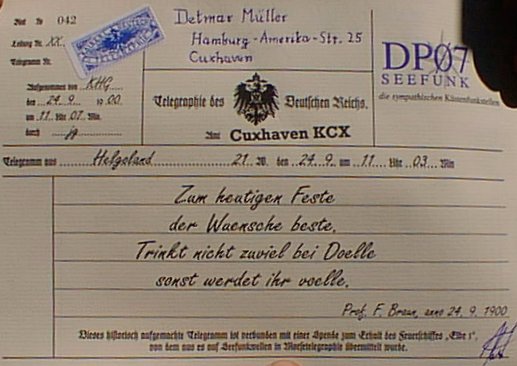 Blat № 042
Leitung Nr. XX.
Telegramm Nr.
Aufgenommen von KHG
den 24.9. 1900
um 11 Uhr 07 Min.
durch jg
Detmar Müller
Hamburg-Amerika-Str. 25
Cuxhaven
DPØ7
SEEFUNK
die sympathischen Küstenfunkstellen
Telegraphie des Deutschen Reichs.
Amt Cuxhaven KCX
Telegramm aus Helgoland 21 W. den 24.9. um 11 Uhr 03 Min
Zum heutigen Feste
der Wuensche beste.
Trinkt nicht zuviel bei Doelle
sonst werdet ihr voelle.
Prof. F. Braun, anno 24.9.1900
Dieses historisch aufgemachte Telegramm ist verbunden mit einer Spende zum Erhalt des Feuerschiffes „Elbe 1",
von dem aus es auf Seefunkwellen in Morsetelegraphie übermittelt wurde.